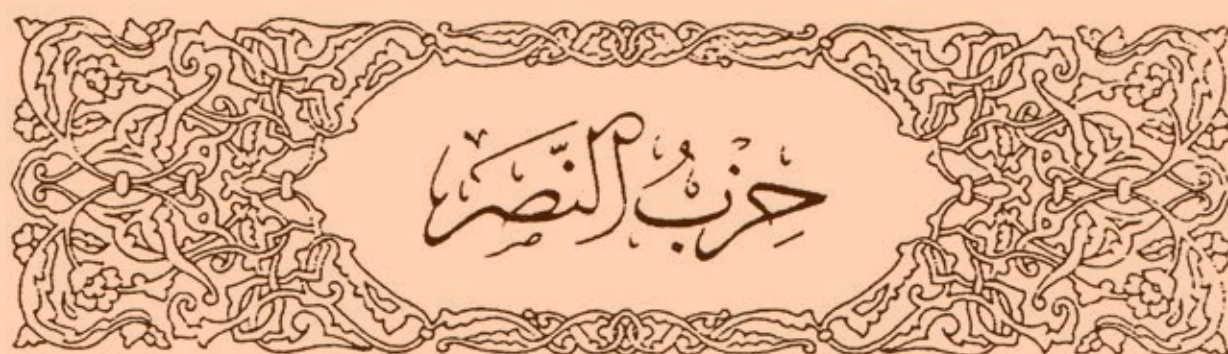 حِزْبُ النَّصْرِ